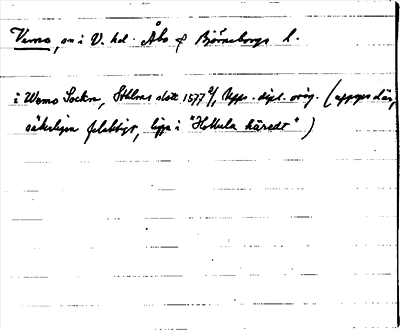 Vemo, sn i V. hd. Åbo o. Björneborgs l.
i Wemo Sockn, Sthlms slott 1577 2/1, Upps. dipl. orig. (uppges där,
säkerligen felaktigt, ligga i "Hottula härade")